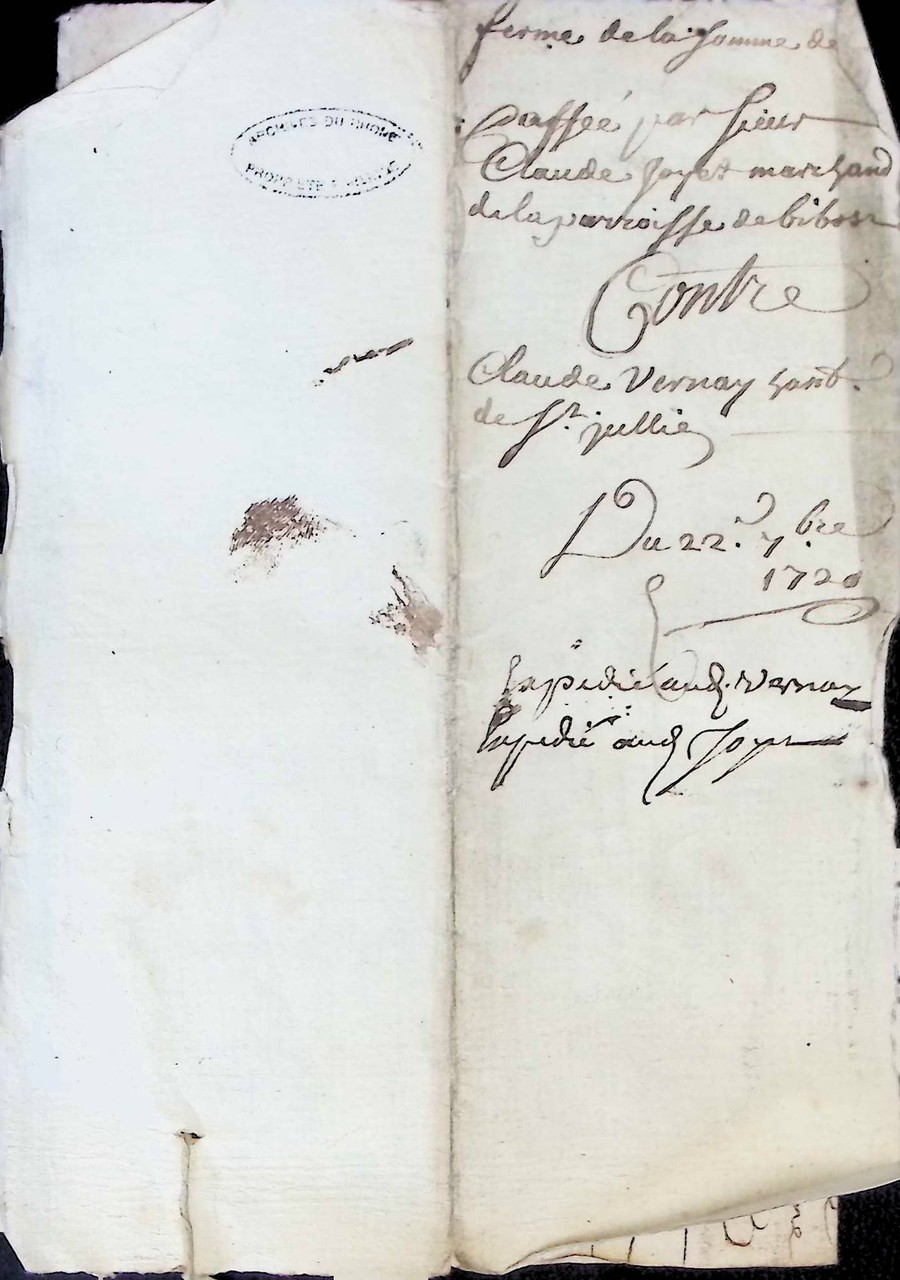 ARCHIVES DU RHONE
PROPRIETE PUBLIQUE
ferme de la somme de
Passée par sieur
Claude Joyet marchand
de la parroisse de bibost
Contre
Claude Vernay hant.
de St. jullie
Du 22e. 7.bre
1720
Expedié aud. Vernay
Expedié aud Joyet